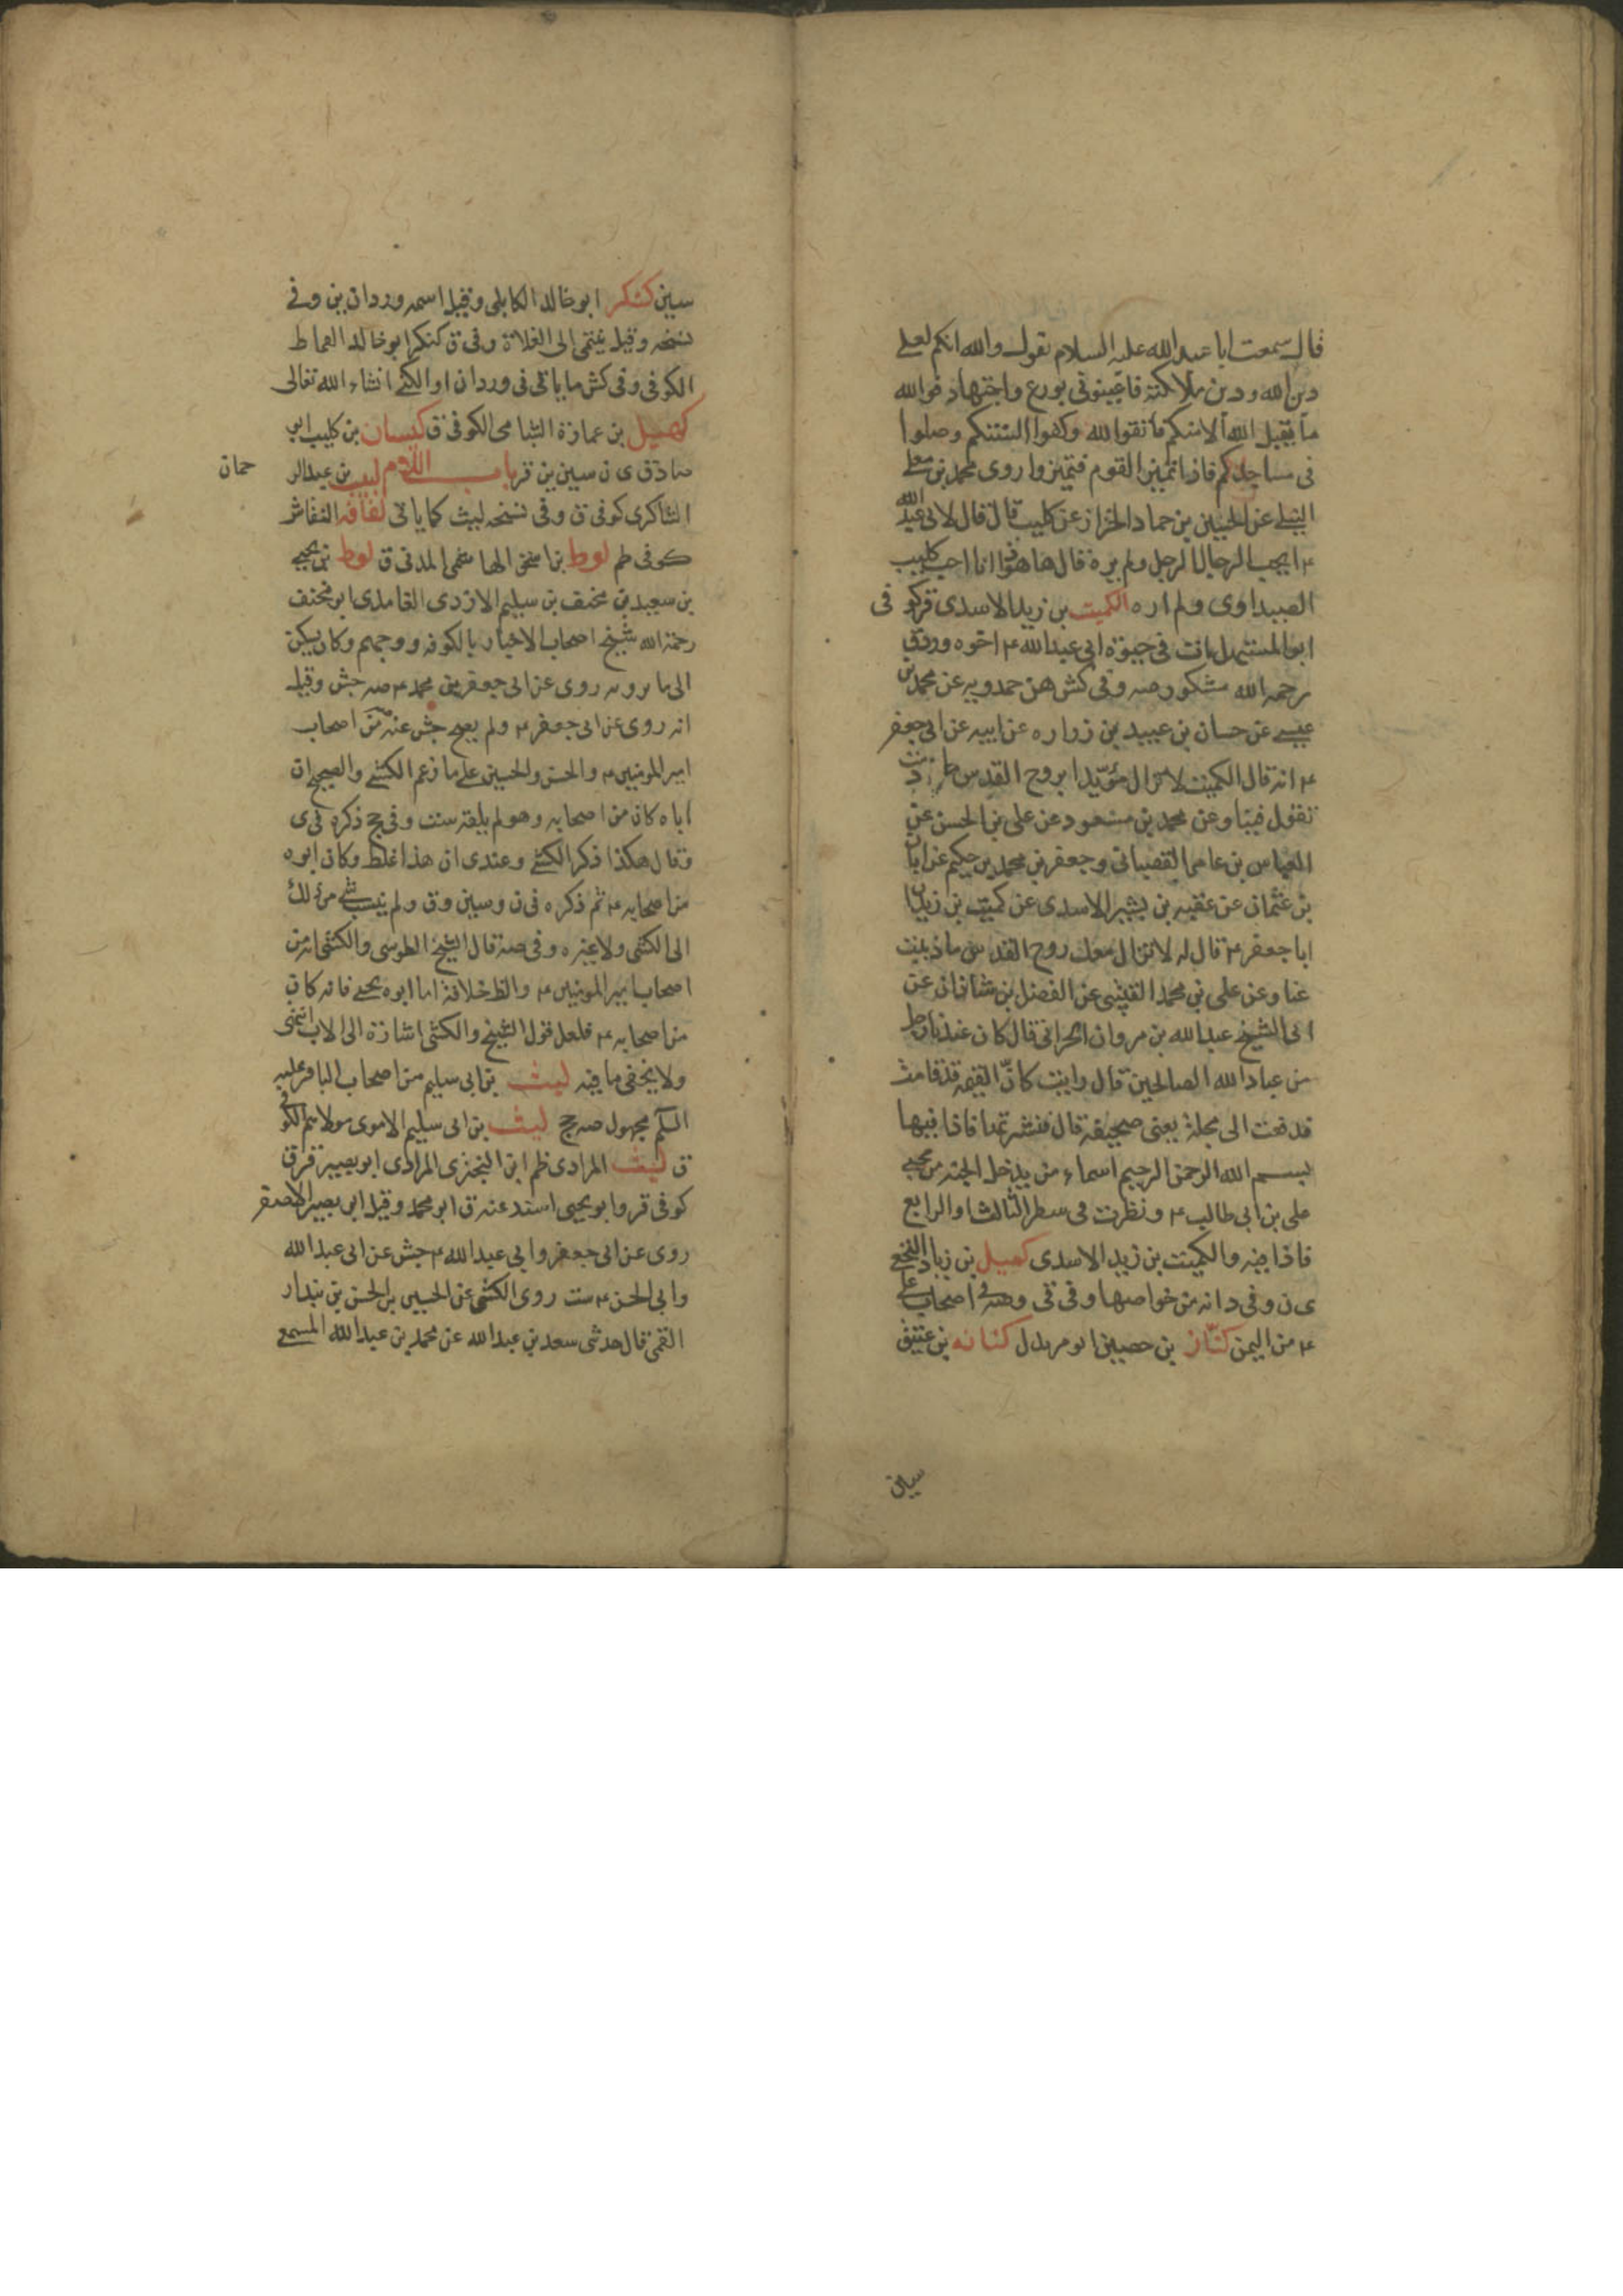 قال سمعت ابا عبد الله عليه السلام يقول والله انكم لعلى
دين الله ودين ملائكته فاعينونى بورع واجتهاد فوالله
ما يتقبل الله الا منكم فاتقوا الله وكفوا السنتكم وصلوا
فى مساجدكم فاذا تميز القوم فتميزوا روى محمد بن معلى
النيلى عن الحسين بن حماد الخزاز عن كليب قال قال لابى عبد الله
ع ايحب الرجل الرجل ولم يره قال ها هوذا انا احب كليب
الصيداوى ولم اره الكميت بن زيد الاسدى قر كوفى
ابو المستهل مات فى حيوة ابى عبد الله ع اخوه ورد ق
رحمه الله مشكور صه وفى كش عن حمدويه عن محمد بن
عيسى عن حسان بن عبيد بن زراره عن ابيه عن ابى جعفر
ع انه قال الكميت لا تزال مؤيدا بروح القدس ما دمت
تقول فينا وعن محمد بن مسعود عن على بن الحسن عن
العباس بن عامر القصبانى وجعفر بن محمد بن حكيم عن ابان
بن عثمان عن عقبه بن بشير الاسدى عن كميت بن زيد ان
ابا جعفر ع قال له لا تزال معك روح القدس ما ذببت
عنا وعن على بن محمد القتيبى عن الفضل بن شاذان عن
ابى الشيخ عبد الله بن مروان الحرانى قال كان عندنا رجل
من عباد الله الصالحين قال رايت كان القيمه قد قامت
فدفعت الى مجلة يعنى صحيفة قال فنشرتها فاذا فيها
بسم الله الرحمن الرحيم اسماء من يدخل الجنة من محبى
على بن ابى طالب ع ونظرت فى سطر الثالث او الرابع
فاذا فيه والكميت بن زيد الاسدى كميل بن زياد النخعى
ى ن وفى د انه من خواصها وفى قى وصه فى اصحاب على
ع من اليمن كناز بن حصين ابو مرثد ل كنانه بن عتيق
سين
سين كنكر ابو خالد الكابلى وقيل اسمه وردان ين وفى
نسخه وقيل ينتمى الى الغلاة وفى ق كنكر ابو خالد القماط
الكوفى وفى كش ما ياتى فى وردان او الكنى انشاء الله تعالى
كهميل بن عمارة الشامى الكوفى ق كيسان بن كليب ابو
صادق ى ن سين ين قر باب اللام لبيب بن عبد الر
حمان
الشاكرى كوفى ق وفى نسخه ليث كما ياتى لفافه النفاش
كوفى لم لوط بن اسحق الهاشمى المدنى ق لوط بن يحيى
بن سعيد بن مخنف بن سليم الازدى الغامدى ابو مخنف
رحمة الله شيخ اصحاب الاخبار بالكوفه ووجههم وكان يسكن
الى ما يرويه روى عن ابى جعفر بن محمد ع صه جش وقيل
انه روى عن ابى جعفر ع ولم يصح جش عنه من اصحاب
امير المومنين ع والحسن والحسين على ما زعم الكشى والصحيح ان
اباه كان من اصحابه وهو لم يلقه ست وفى جخ ذكره فى ى
وقال هكذا ذكر الكشى وعندى ان هذا غلط وكان ابوه
من اصحابه ع ثم ذكره فى ن وسين وق ولم ينسب شى من ذلك
الى الكشى ولا غيره وفى صه قال الشيخ الطوسى والكشى انه من
اصحاب امير المومنين ع والظ خلافه اما ابوه يحيى فانه كان
من اصحابه ع فلعل قول الشيخ والكشى اشارة الى الاب انتهى
ولا يخفى ما فيه ليث بن ابى سليم من اصحاب الباقر عليه
السلم مجهول صه جخ ليث بن ابى سليم الاموى مولاهم الكوفى
ق ليث المرادى ظم ابن البخترى المرادى ابو بصير قر ق
كوفى قر وابو يحيى اسند عنه ق ابو محمد وقيل ابو بصير الاصغر
روى عن ابى جعفر وابى عبد الله ع جش عن ابى عبد الله
وابى الحسن ع ست روى الكشى عن الحسين بن الحسن بن بندار
القمى قال حدثنى سعد بن عبد الله عن محمد بن عبد الله المسمعى